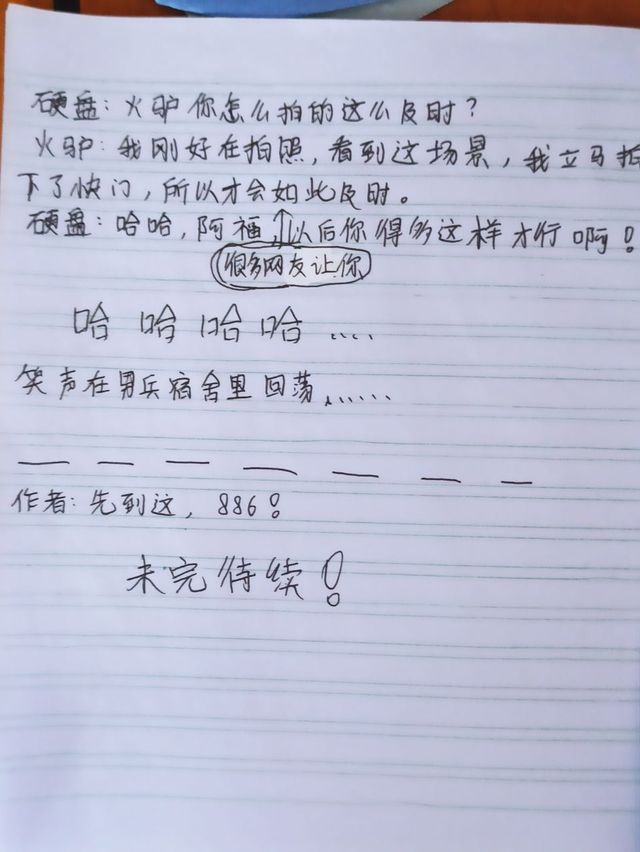 硬盘：火驴你怎么拍的这么及时？
火驴：我刚好在拍照，看到这场景，我立马拍
下了快门，所以才会如此及时。
硬盘：哈哈，阿福，以后你得多这样才行啊！
很多网友让你
哈哈哈哈……
笑声在男兵宿舍里回荡，……
— — — — — — —
作者：先到这，886！
未完待续！